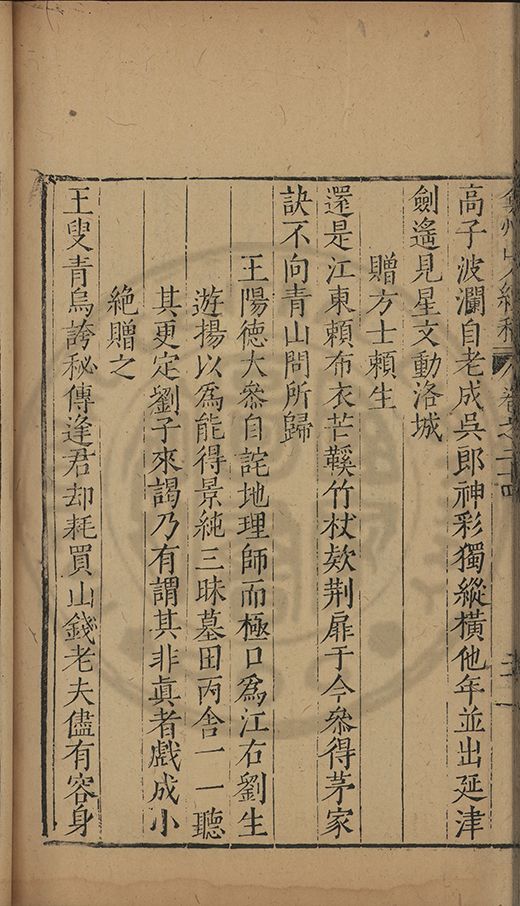 高子波瀾自老成吳郎神彩獨縱橫他年並出延津
劍遙見星文動洛城
贈方士賴生
還是江東賴布衣芒鞵竹杖欵荆扉于今叅得茅家
訣不向青山問所歸
王陽德大叅自詫地理師而極口爲江右劉生
遊揚以爲能得景純三昧墓田丙舍一一聽
其更定劉子來謁乃有謂其非眞者戲成小
絶贈之
王叟青烏誇秘傳逢君却耗買山錢老夫儘有容身